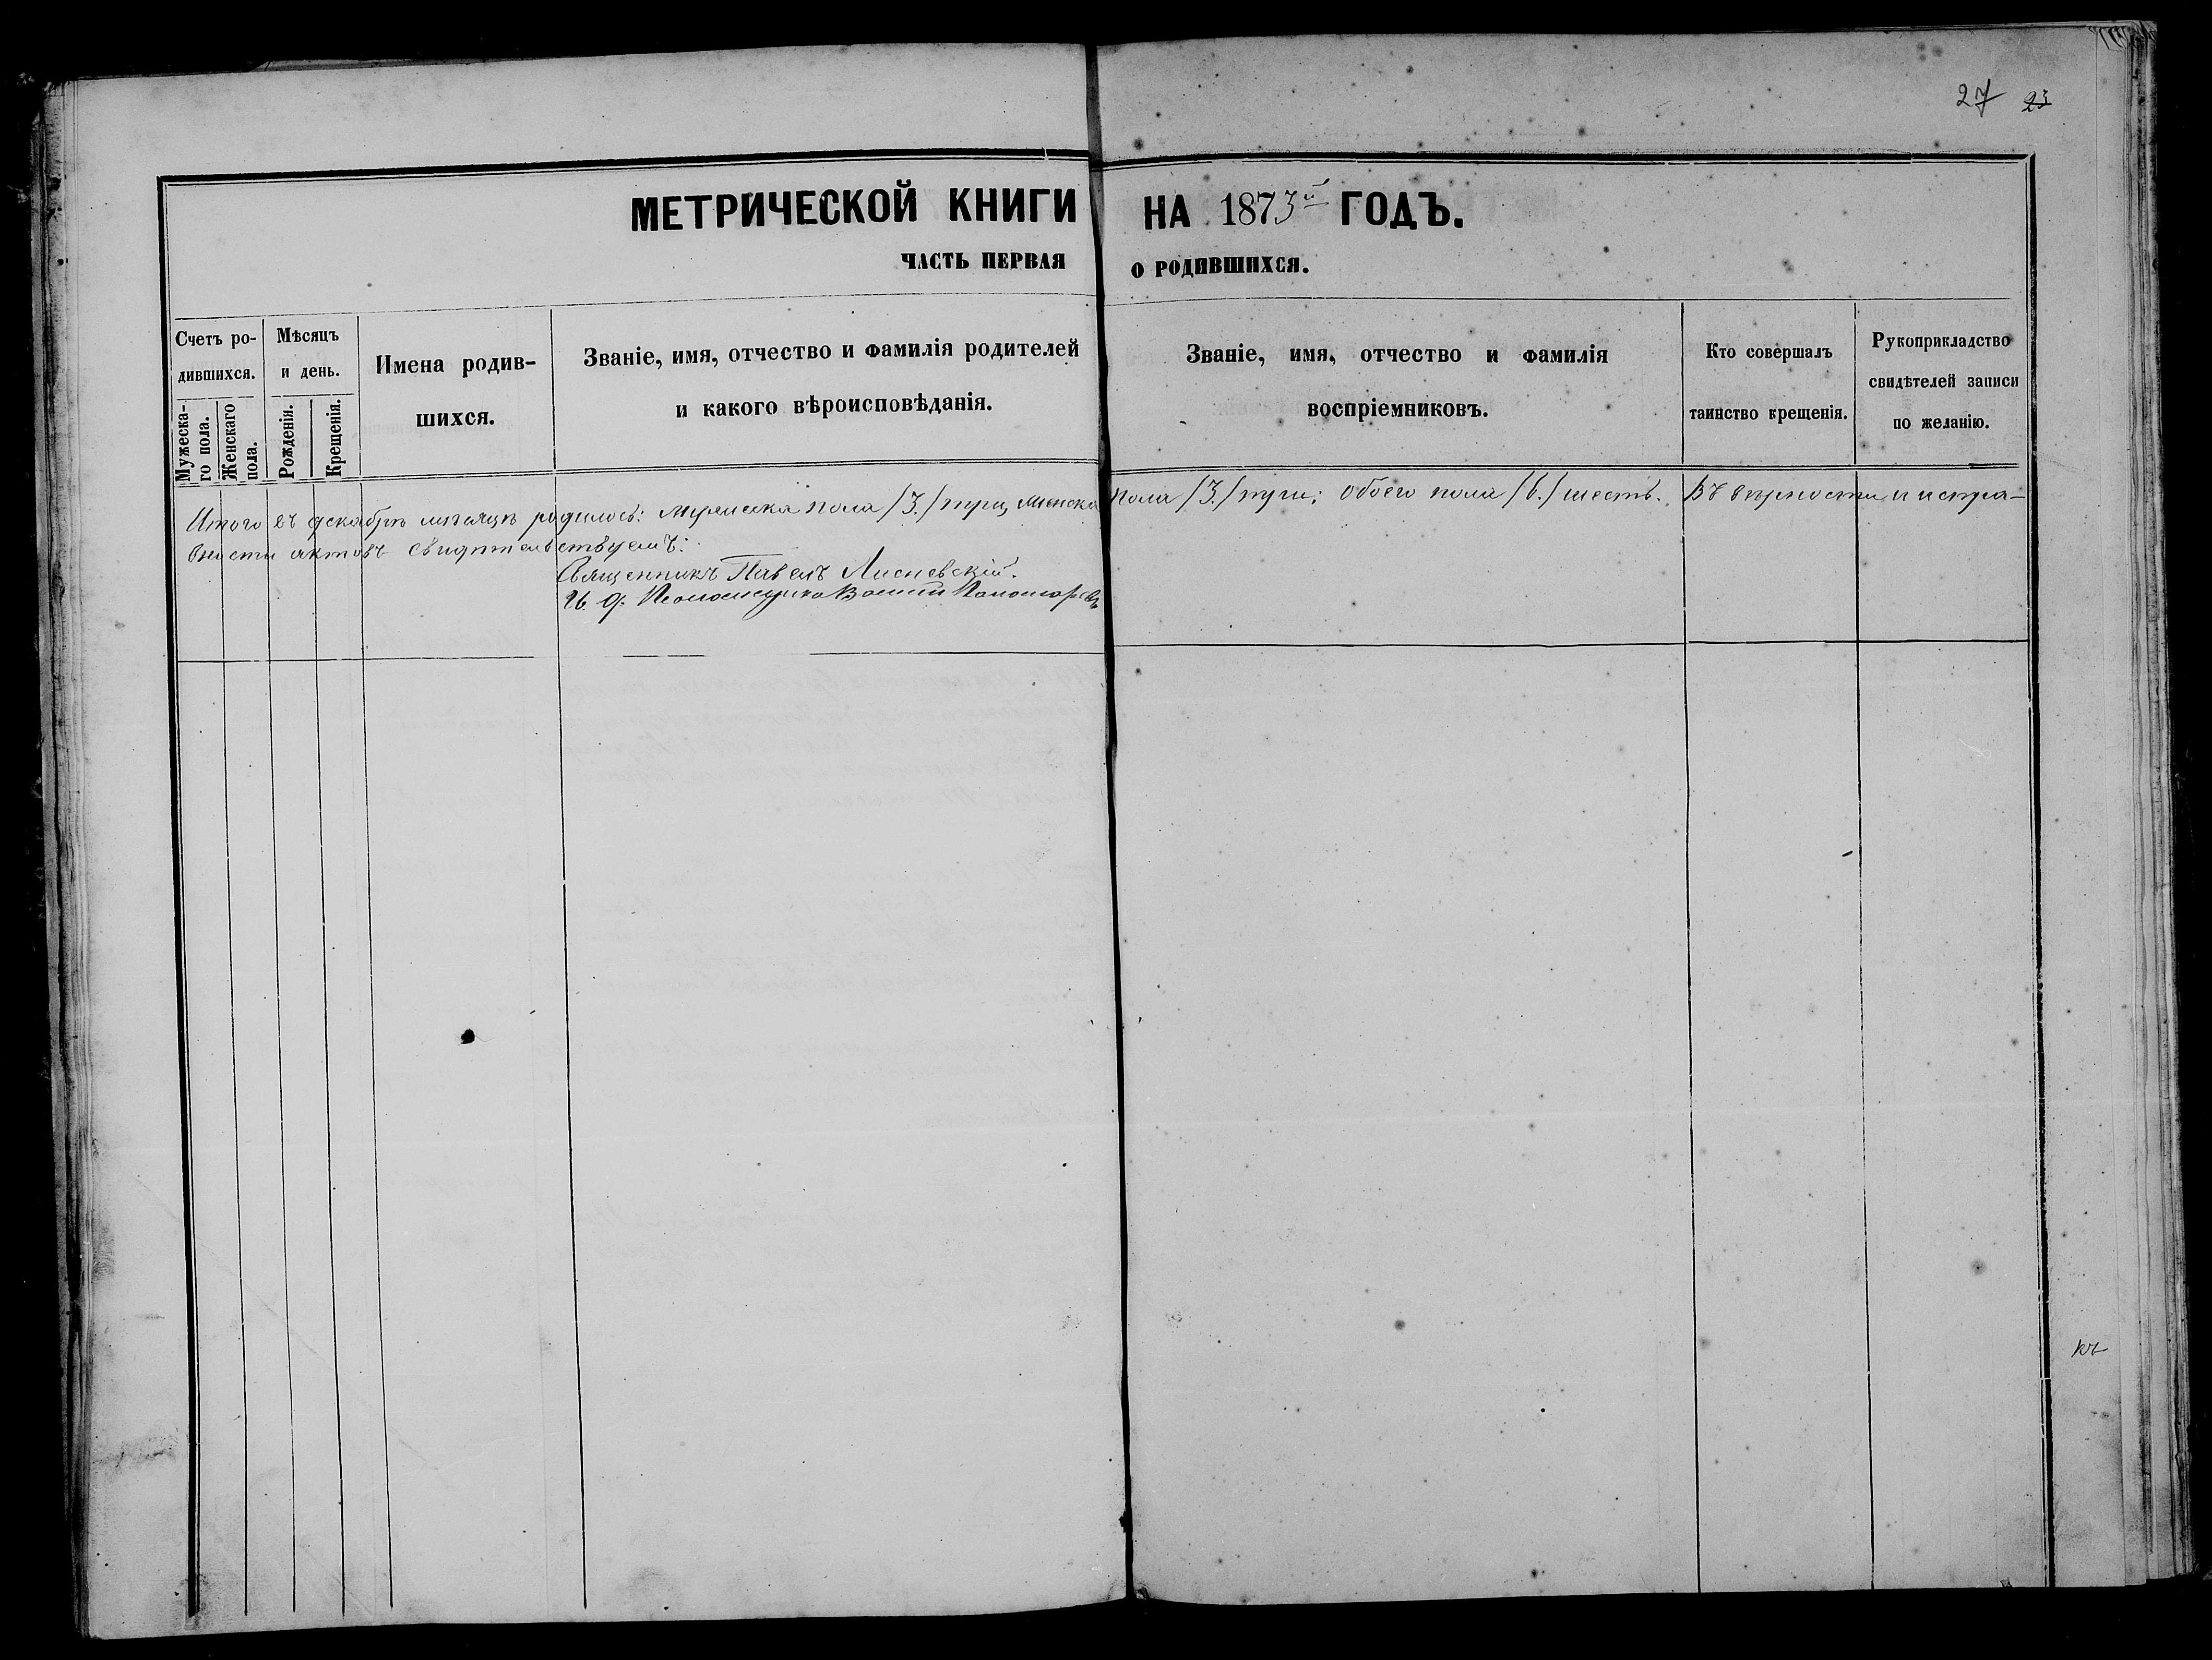 27 23
МЕТРИЧЕСКОЙ КНИГИ НА 1873й ГОДЪ.
ЧАСТЬ ПЕРВАЯ О РОДИВШИХСЯ.
Счетъ ро-
дившихся.
Мужеска-
го пола.
Женскаго
пола.
Мѣсяцъ
и день.
Рожденія.
Крещенія.
Имена родив-
шихся.
Званіе, имя, отчество и фамилія родителей
и какого вѣроисповѣданія.
Званіе, имя, отчество и фамилія
воспріемниковъ.
Кто совершалъ
таинство крещенія.
Рукоприкладство
свидѣтелей записи
по желанію.
Итого въ декабрѣ мѣсяцѣ родилось: мужеска пола /3./ три, женска пола /3./ три; обоего пола /6./ шесть. Въ вѣрности и испра-
вности актовъ свидѣтельствуемъ:
Священникъ Павелъ Лисневскій.
И. д. Псаломщика Пономаревъ